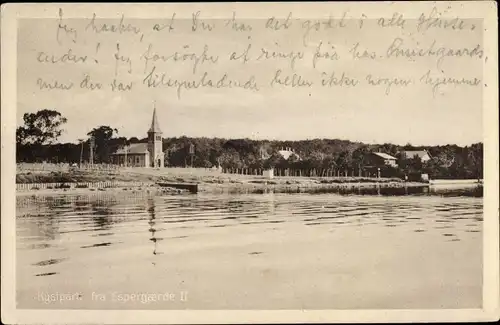 Jeg haaber, at Du har det godt i alle Henseender!
ender! Jeg forsøgte at ringe fra hos Krisistgaards,
men der var tilsyneladende heller ikke nogen hjemme.
Kystparti fra Espergærde II